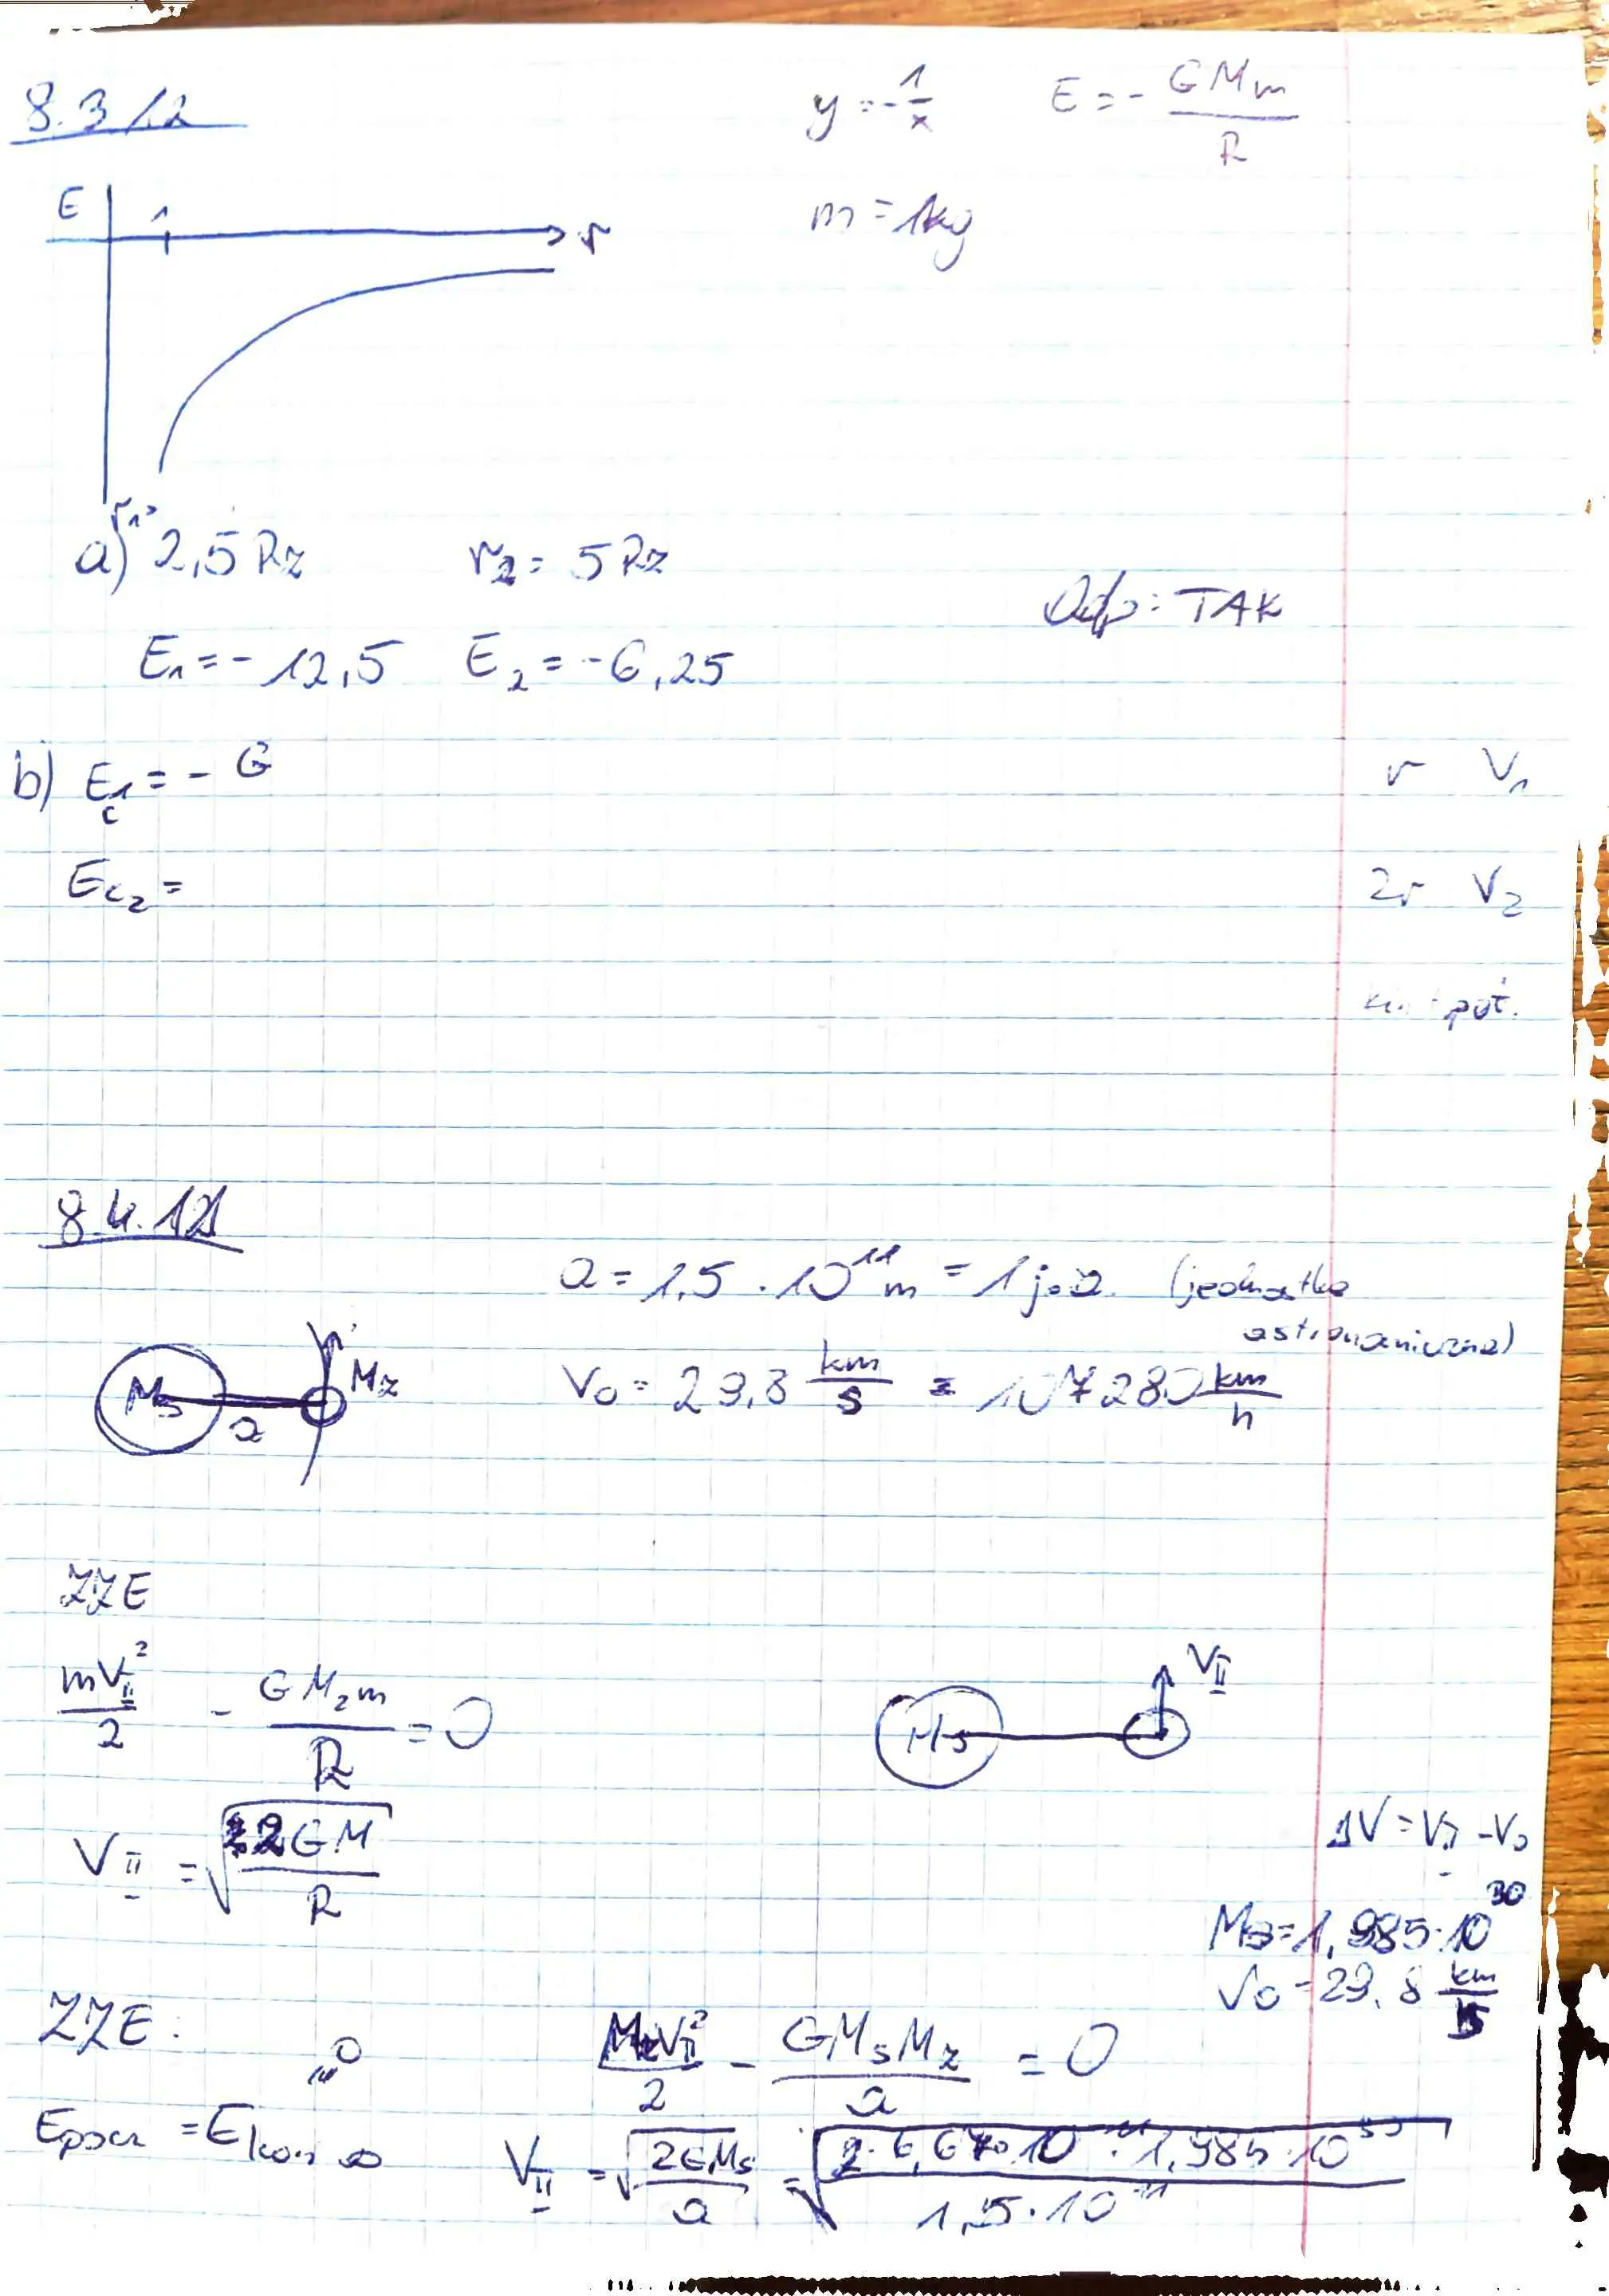 8.3.12
y = -1/x   E = - GMm/R
m = 1kg
E   1   r
a) r₁= 2,5 Rz   r₂ = 5 Rz
Odp: TAK
E₁ = - 12,5   E₂ = - 6,25
b) Ec1 = - G   r   V₁
Ec₂ =   2r   V₂
pot.
8.4.12
a = 1,5 · 10¹¹ m = 1 j.a. (jednostka astronomiczna)
Ms   a   Mz
V₀ = 29,8 km/s = 107280 km/h
ZZE
mV_II²/2 - GMzm/R = 0
Ms   V_II
V_II = √(2GM/R)
ΔV = V_II - V₀
Ms = 1,985·10³⁰
V₀ = 29,8 km/s
ZZE:
MzV_II²/2 - GMsMz/a = 0
Epocz = Ekon ∞
"0
V_II = √(2GMs/a) = √(2·6,670·10⁻¹¹·1,985·10³⁰/1,5·10¹¹)